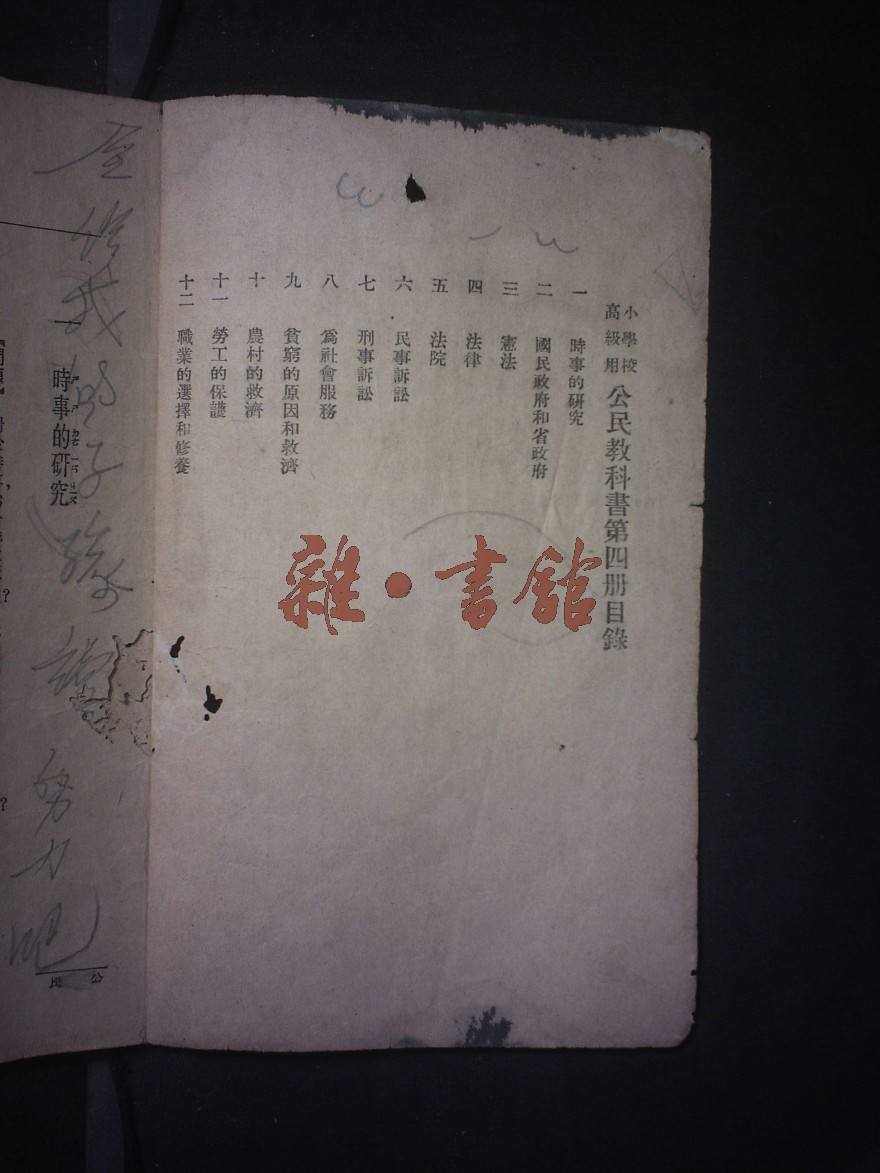 小學校高級用 公民教科書第四册目錄
一 時事的研究
二 國民政府和省政府
三 憲法
四 法律
五 法院
六 民事訴訟
七 刑事訴訟
八 爲社會服務
九 貧窮的原因和救濟
十 農村的救濟
十一 勞工的保護
十二 職業的選擇和修養
雜·書館
努力吧
時事的研究
公民